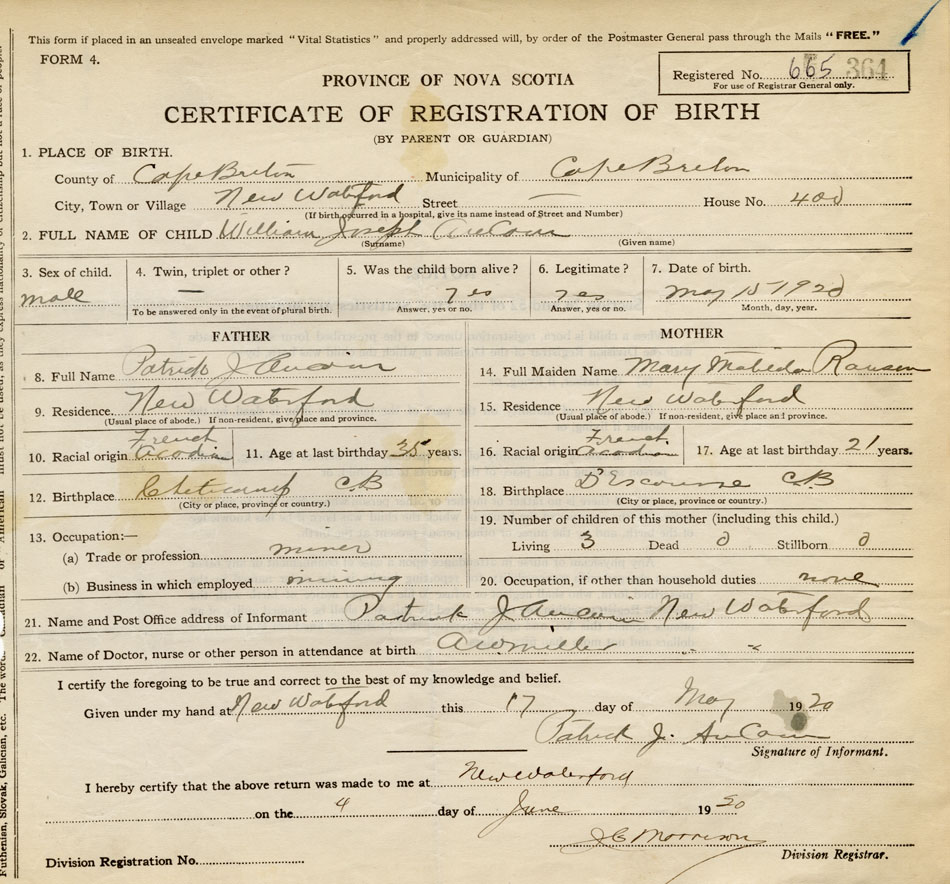 This form if placed in an unsealed envelope marked "Vital Statistics" and properly addressed will, by order of the Postmaster General pass through the Mails "FREE."
FORM 4.
Registered No. 665 364
For use of Registrar General only.
PROVINCE OF NOVA SCOTIA
CERTIFICATE OF REGISTRATION OF BIRTH
(BY PARENT OR GUARDIAN)
1. PLACE OF BIRTH.
County of Cape Breton Municipality of Cape Breton
City, Town or Village New Waterford Street — House No. 400
(If birth occurred in a hospital, give its name instead of Street and Number)
2. FULL NAME OF CHILD William Joseph AuCoin
(Surname) (Given name)
3. Sex of child. 4. Twin, triplet or other? 5. Was the child born alive? 6. Legitimate? 7. Date of birth.
male — yes yes May 15 1920
To be answered only in the event of plural birth. Answer, yes or no. Answer, yes or no. Month, day, year.
FATHER
8. Full Name Patrick J Aucoin
9. Residence New Waterford
(Usual place of abode.) If non-resident, give place and province.
10. Racial origin French Acadian 11. Age at last birthday 35 years.
12. Birthplace C.B
(City or place, province or country.)
13. Occupation:—
(a) Trade or profession miner
(b) Business in which employed mining
MOTHER
14. Full Maiden Name Mary
15. Residence New Waterford
(Usual place of abode.) If non-resident, give place and province.
16. Racial origin French Acadian 17. Age at last birthday 21 years.
18. Birthplace D'Escousse C.B
(City or place, province or country.)
19. Number of children of this mother (including this child.)
Living 3 Dead 0 Stillborn 0
20. Occupation, if other than household duties none
21. Name and Post Office address of Informant Patrick J Aucoin New Waterford
22. Name of Doctor, nurse or other person in attendance at birth miller " "
I certify the foregoing to be true and correct to the best of my knowledge and belief.
Given under my hand at New Waterford this 17 day of May 1920
Patrick J. AuCoin
Signature of Informant.
I hereby certify that the above return was made to me at New Waterford
on the 4 day of June 1920
Morrison
Division Registrar.
Division Registration No.